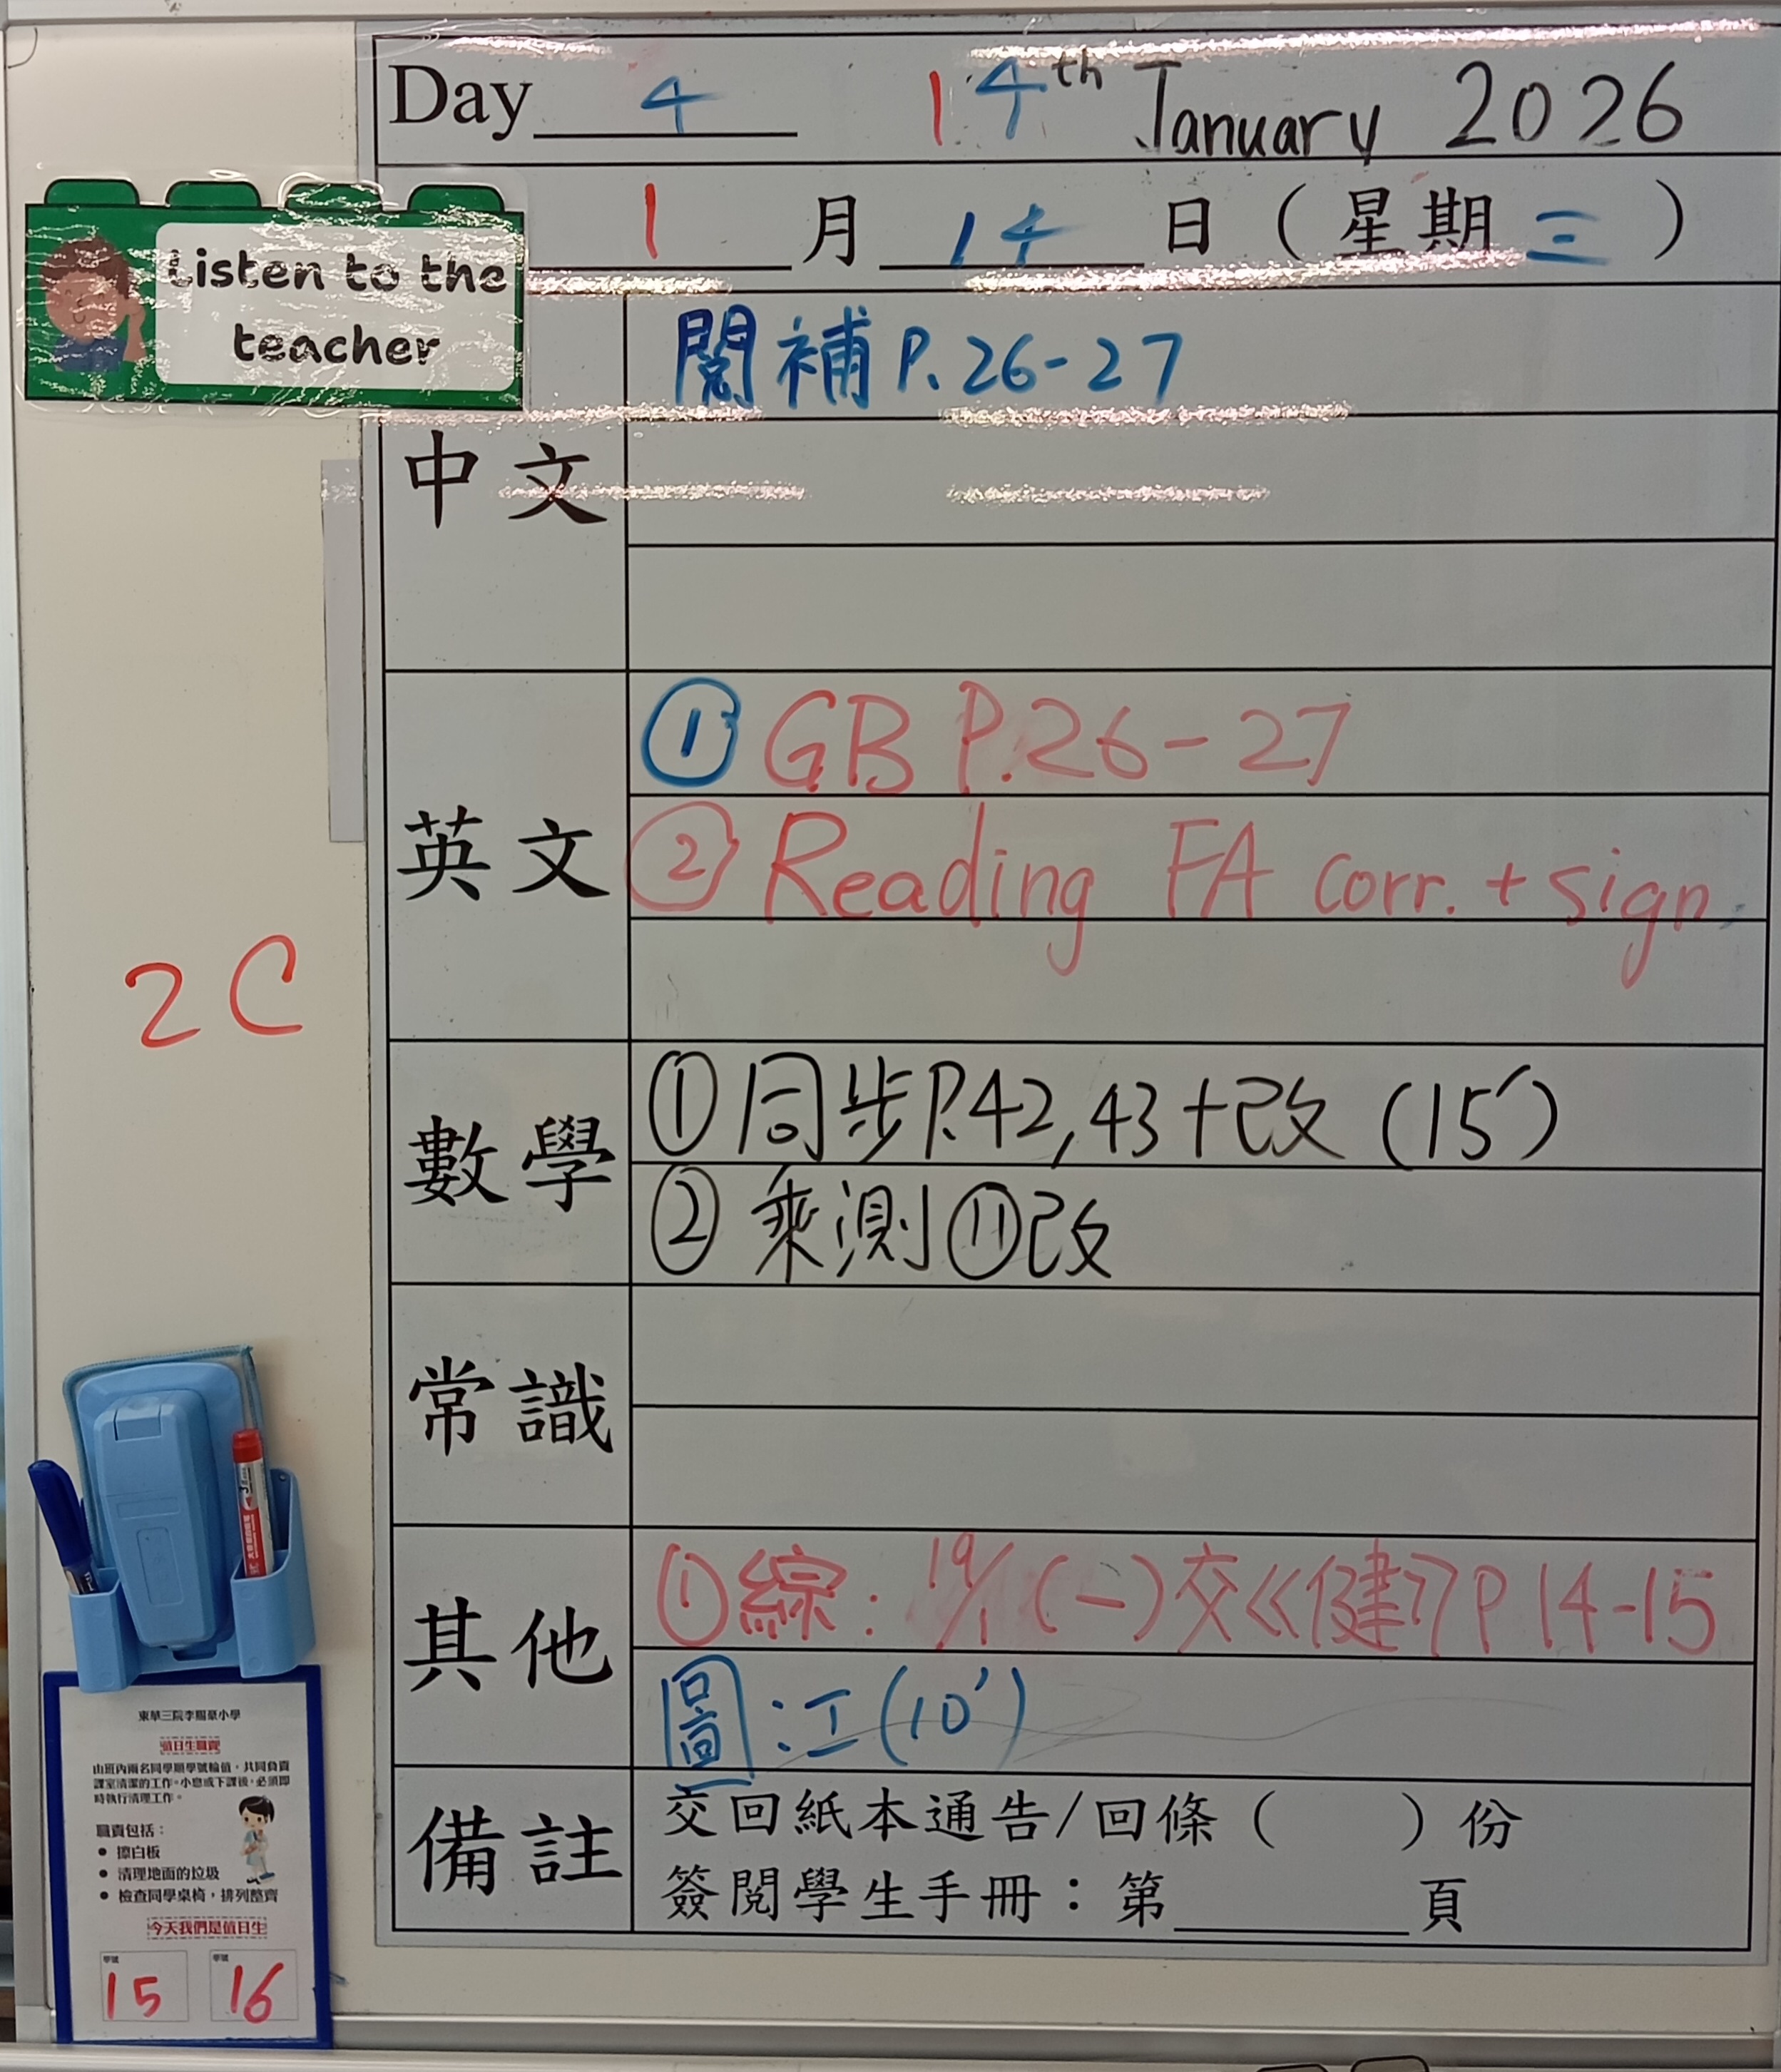 Day 4 14th January 2026
1 月 14 日 ( 星期 三 )
Listen to the
teacher
中文
閱補 P.26-27
英文
① GB P.26-27
② Reading FA corr. + sign
2C
數學
① 同步P.42,43+改 (15')
② 乘測⑪改
常識
其他
①綜: 19/1 (一) 交《健》P14-15
圖:工(10')
備註
交回紙本通告/回條 ( ) 份
簽閱學生手冊：第 頁
東華三院李賜豪小學
值日生職責
由班內兩名同學順學號輪值，共同負責
課室清潔的工作。小息或下課後，必須即
時執行清理工作。
職責包括：
• 擦白板
• 清理地面的垃圾
• 檢查同學桌椅，排列整齊
今天我們是值日生
學號 學號
15 16